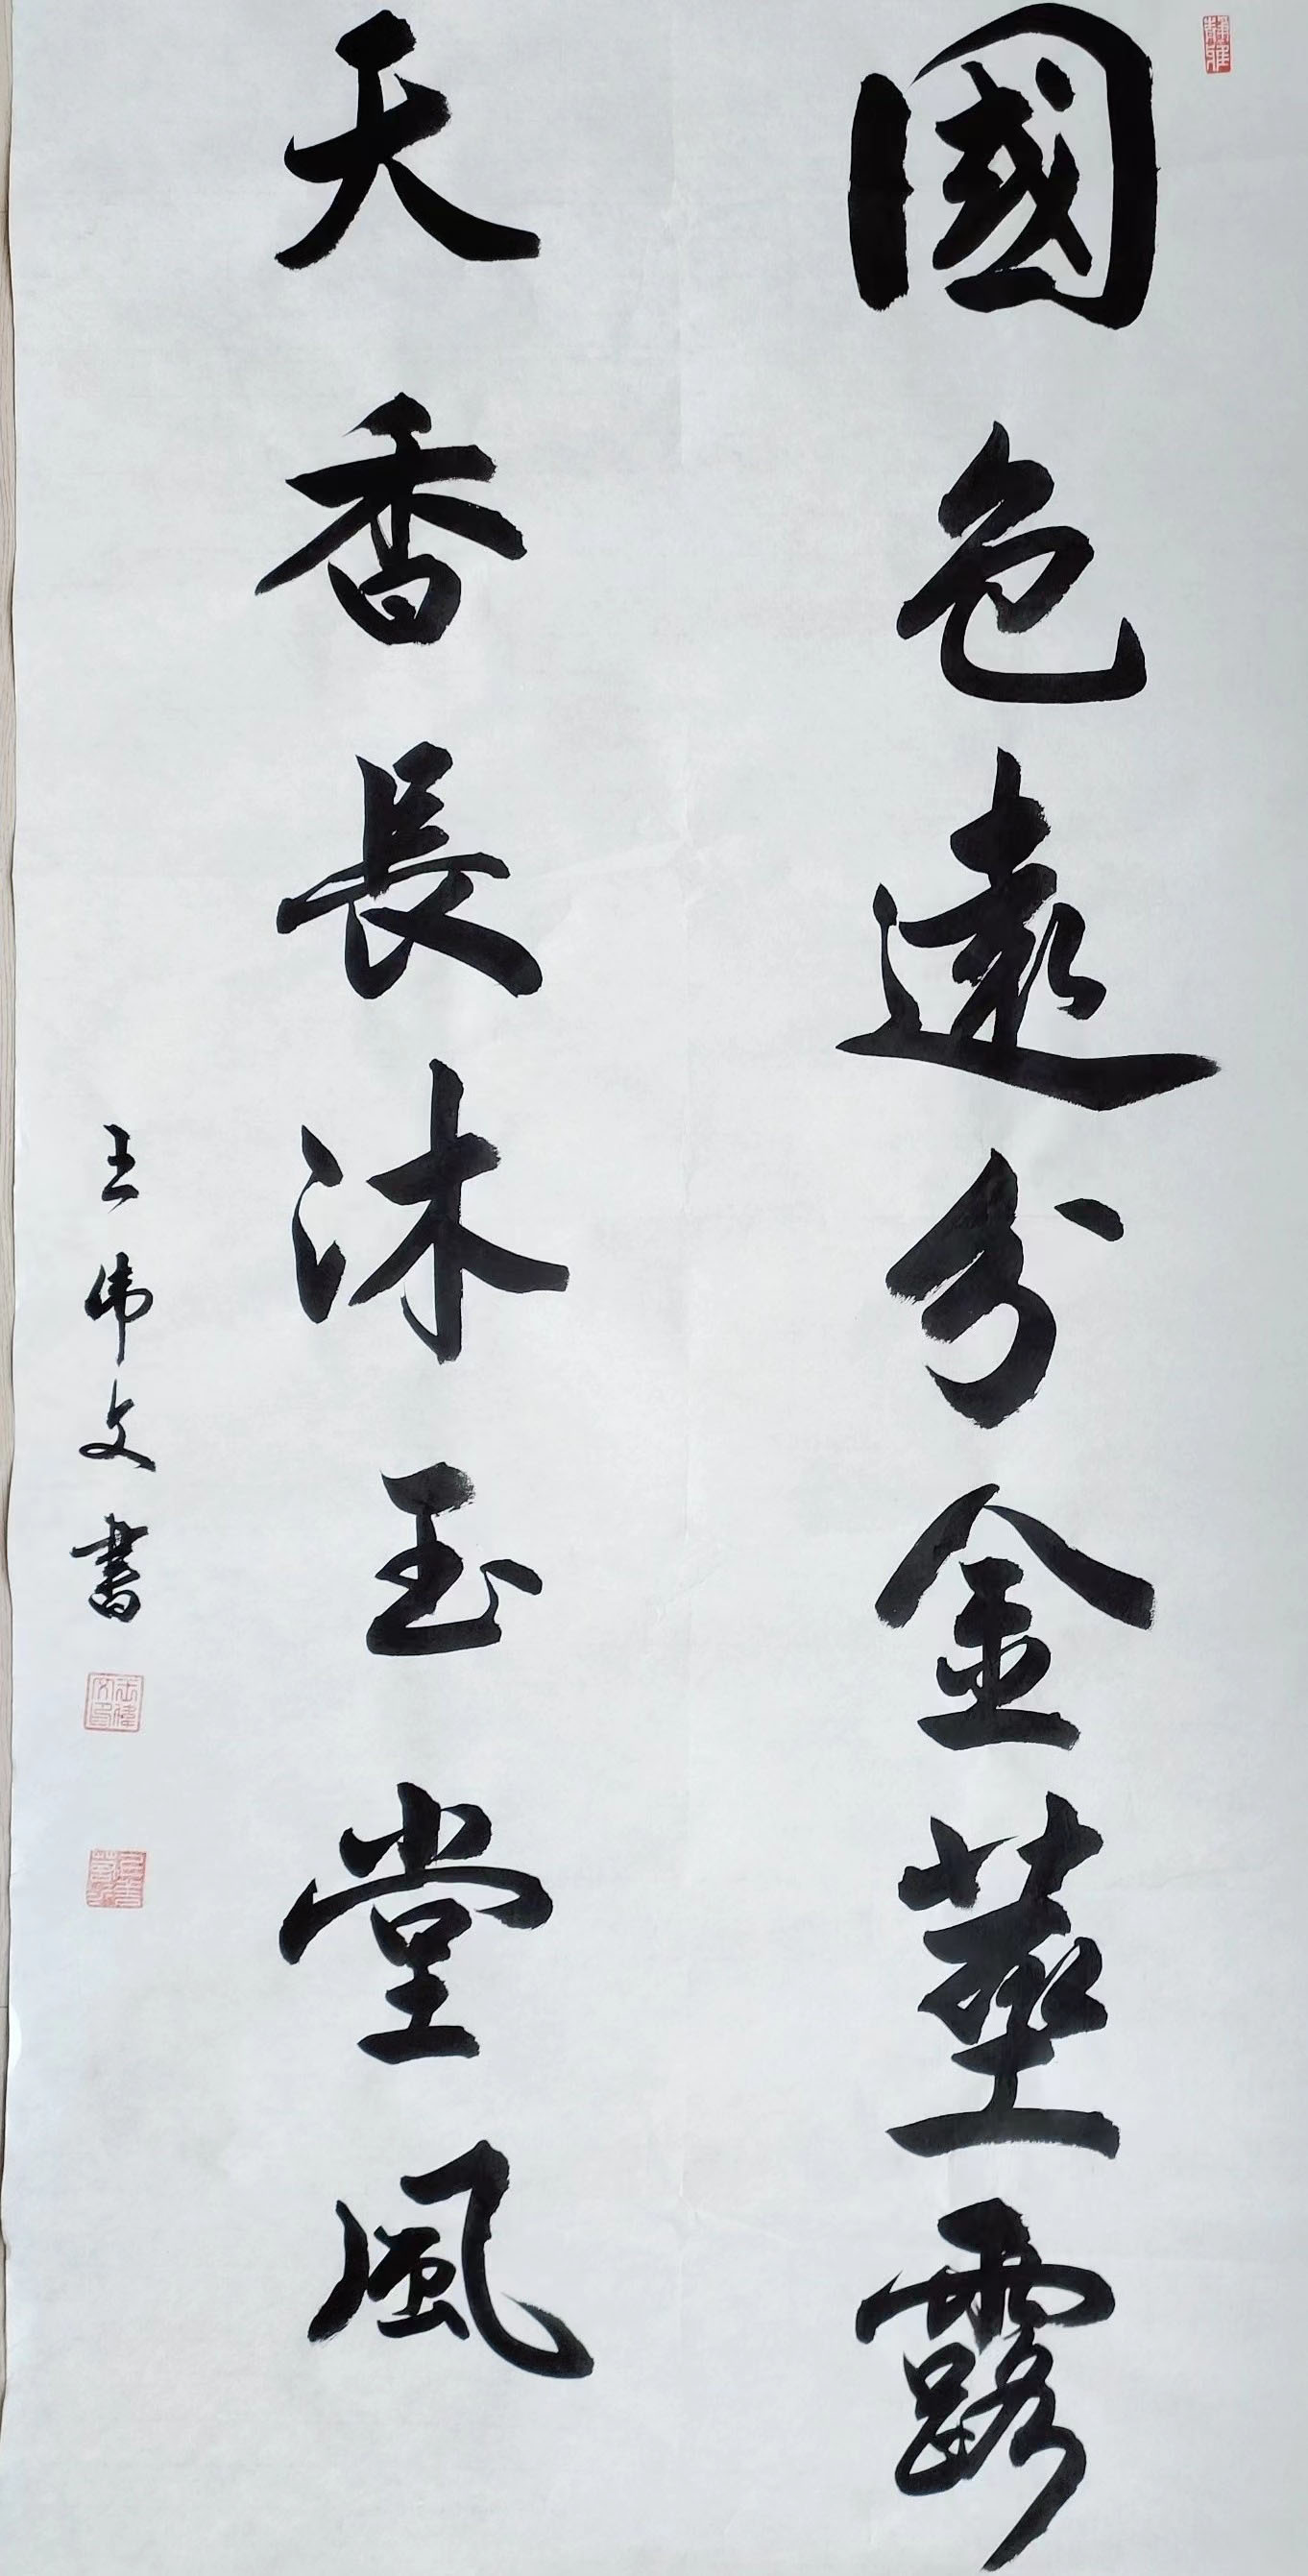 國色遠分金莖露
天香長沐玉堂風
王伟文書
靜雅